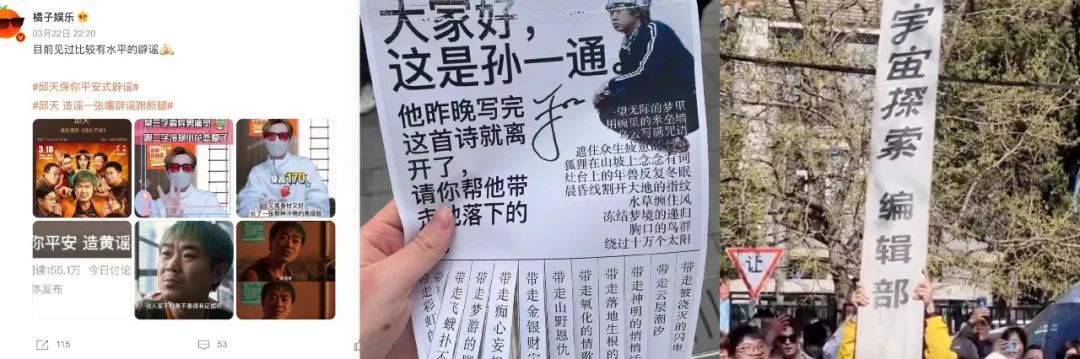 橘子娱乐
03月22日 22:20
目前见过比较有水平的辟谣
#邱天保你平安式辟谣#
#邱天 造谣一张嘴辟谣跑断腿#
邱天
3.10
跟二字冷艳小花恋爱了
身高170
又高身材又好
长了一张那种冷艳的高级脸
你平安 造黄谣
阅读155.1万 今日讨论
体发布
115
53
大家好，
这是孙一通。
他昨晚写完
这首诗就离
开了，
请你帮他带
走他落下的
望无际的梦里
用碗里的米垒墙
乌云写满咒语
遮住众生疲惫的
狐狸在山坡上念念有词
灶台上的年兽反复冬眠
晨昏线割开大地的指纹
水草缠住风
冻结梦境的递归
胸口的鸟群
绕过十万个太阳
带走彩虹的
带走飞蛾扑不
带走梦游的脚
带走痴心妄想
带走金银财宝
带走山野恩仇
带走氧化的情歌
带走落地生根的
带走神明的悄悄话
带走云层潮汐
带走被浇灭的闪电
宇宙探索 编辑部
让